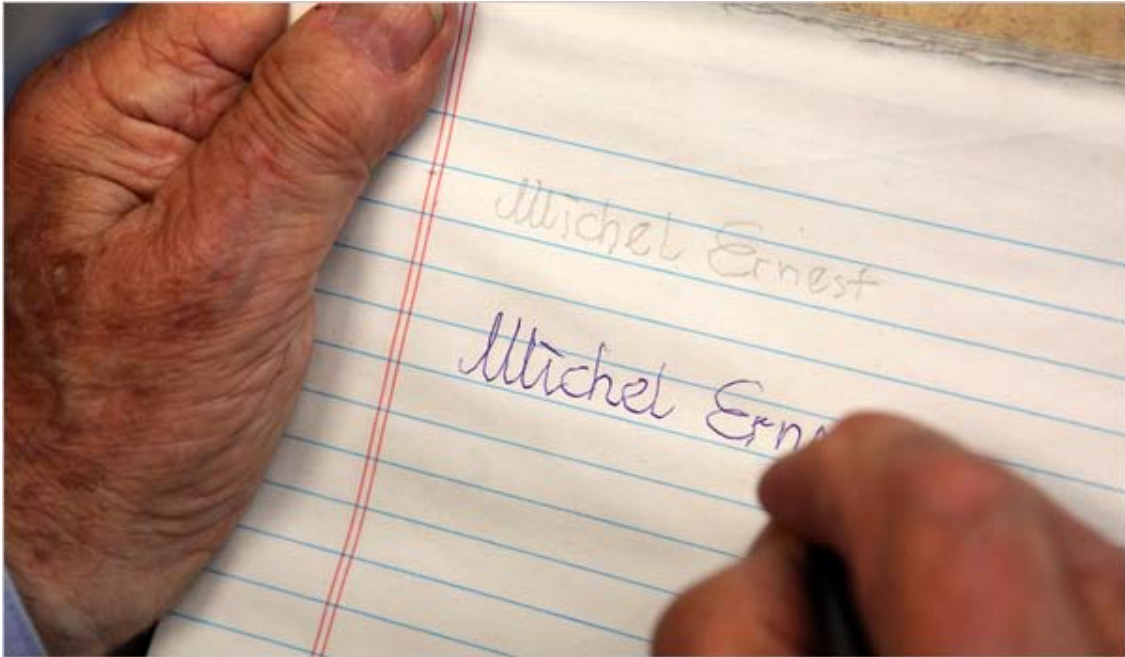 Michel Ernest
Michel Ern